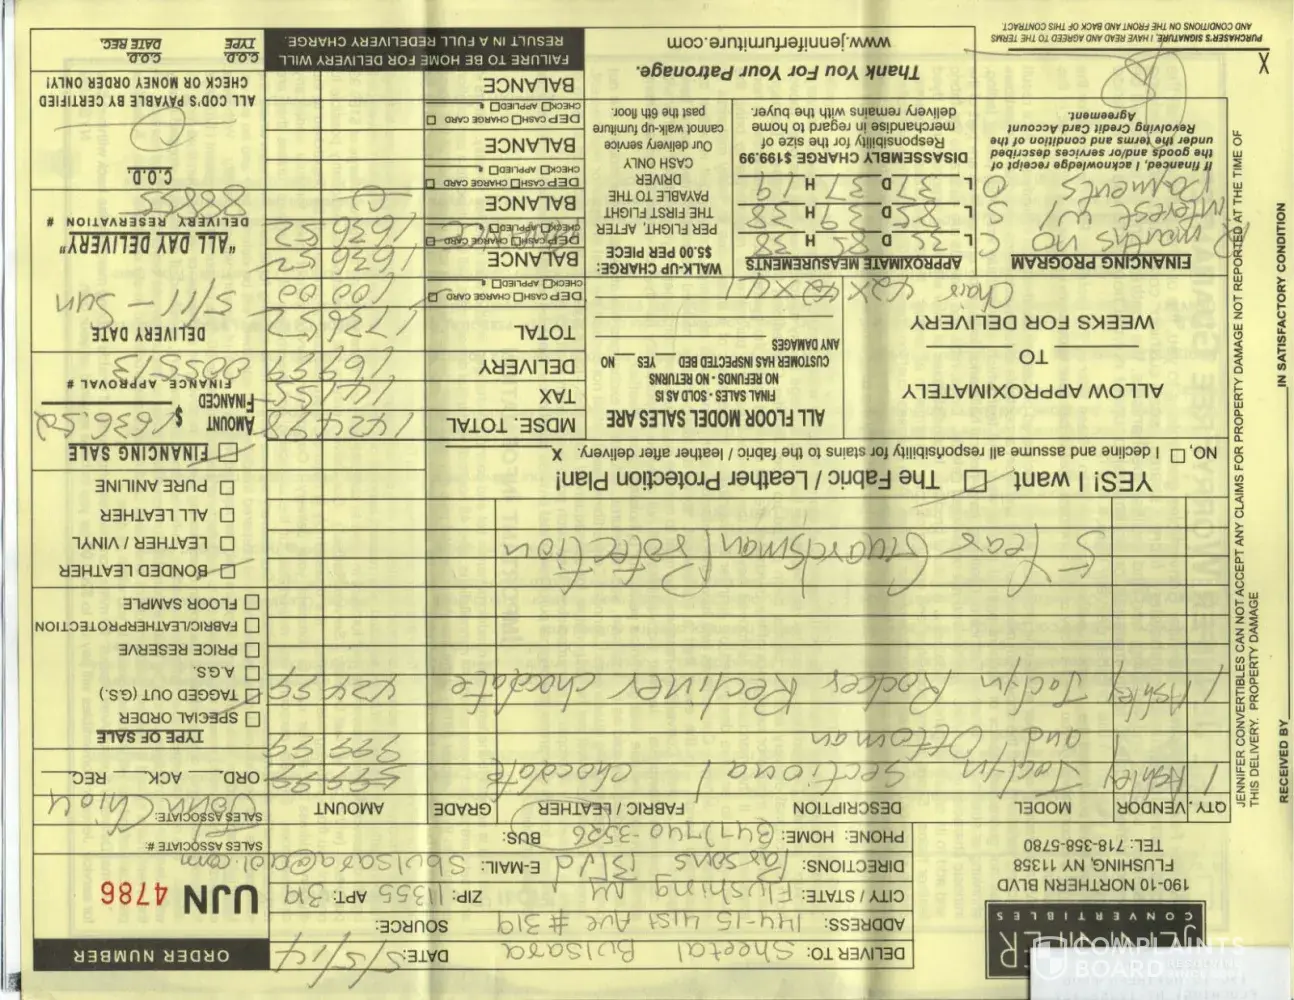 JENNIFER
CONVERTIBLES
190-10 NORTHERN BLVD
FLUSHING NY 11358
TEL: 718-358-5780
DELIVER TO: Sheetal Bulsara DATE: 5/5/14
ADDRESS: 144-15 41st Ave #319 SOURCE:
CITY / STATE: Flushing NY ZIP: 11355 APT: 319
DIRECTIONS: Parsons Blvd E-MAIL: Sbulsara@aol.com
PHONE: HOME: (347) 740-3526 BUS:
ORDER NUMBER
UJN 4786
SALES ASSOCIATE #:
SALES ASSOCIATE: John Chiou
QTY. VENDOR MODEL DESCRIPTION FABRIC / LEATHER GRADE AMOUNT
1 Ashley Joclyn Sectional chocolate 599 99
1 and Ottoman 999 99
1 Ashley Joclyn Rocker Recliner chocolate 424 99
5 Year Guardsman Protection
ORD. ACK. REC.
TYPE OF SALE
SPECIAL ORDER
TAGGED OUT (G.S.)
A.G.S.
PRICE RESERVE
FABRIC/LEATHERPROTECTION
FLOOR SAMPLE
BONDED LEATHER
LEATHER / VINYL
ALL LEATHER
PURE ANILINE
FINANCING SALE
AMOUNT FINANCED $ 1636.52
FINANCE APPROVAL #
005513
DELIVERY DATE
5/11 - Sun
"ALL DAY DELIVERY"
DELIVERY RESERVATION #
88855
C.O.D.
ALL COD'S PAYABLE BY CERTIFIED
CHECK OR MONEY ORDER ONLY!
C.O.D. TYPE C.O.D. DATE REC.
YES! I want The Fabric / Leather Protection Plan!
NO, I decline and assume all responsibility for stains to the fabric / leather after delivery. X
ALLOW APPROXIMATELY
TO
WEEKS FOR DELIVERY
Chair 42 X 42 X 41
ALL FLOOR MODEL SALES ARE
FINAL SALES - SOLD AS IS
NO REFUNDS - NO RETURNS
CUSTOMER HAS INSPECTED BED YES NO
ANY DAMAGES
MDSE. TOTAL 1424 98
TAX 141 55
DELIVERY 169 99
TOTAL 1736 52
DEP CASH CHARGE CARD CHECK APPLIED # 100 00
BALANCE 1636 52
DEP CASH CHARGE CARD CHECK APPLIED # 1636 52
BALANCE
DEP CASH CHARGE CARD CHECK APPLIED #
BALANCE
DEP CASH CHARGE CARD CHECK APPLIED #
BALANCE
FINANCING PROGRAM
12 months no
interest w/
Payments
If financed, I acknowledge receipt of
the goods and/or services described
under the terms and condition of the
Revolving Credit Card Account
Agreement.
APPROXIMATE MEASUREMENTS
L D 85 H 38
L 85 D 39 H 38
L 37 D 37 H 19
DISASSEMBLY CHARGE $199.99
Responsibility for the size of
merchandise in regard to home
delivery remains with the buyer.
WALK-UP CHARGE:
$5.00 PER PIECE
PER FLIGHT, AFTER
THE FIRST FLIGHT
PAYABLE TO THE
DRIVER
CASH ONLY
Our delivery service
cannot walk-up furniture
past the 6th floor.
Thank You For Your Patronage.
www.jenniferfurniture.com
FAILURE TO BE HOME FOR DELIVERY WILL
RESULT IN A FULL REDELIVERY CHARGE.
X
PURCHASER'S SIGNATURE, I HAVE READ AND AGREED TO THE TERMS
AND CONDITIONS ON THE FRONT AND BACK OF THIS CONTRACT.
JENNIFER CONVERTIBLES CAN NOT ACCEPT ANY CLAIMS FOR PROPERTY DAMAGE NOT REPORTED AT THE TIME OF
THIS DELIVERY. PROPERTY DAMAGE
RECEIVED BY IN SATISFACTORY CONDITION
COMPLAINTS
BOARD